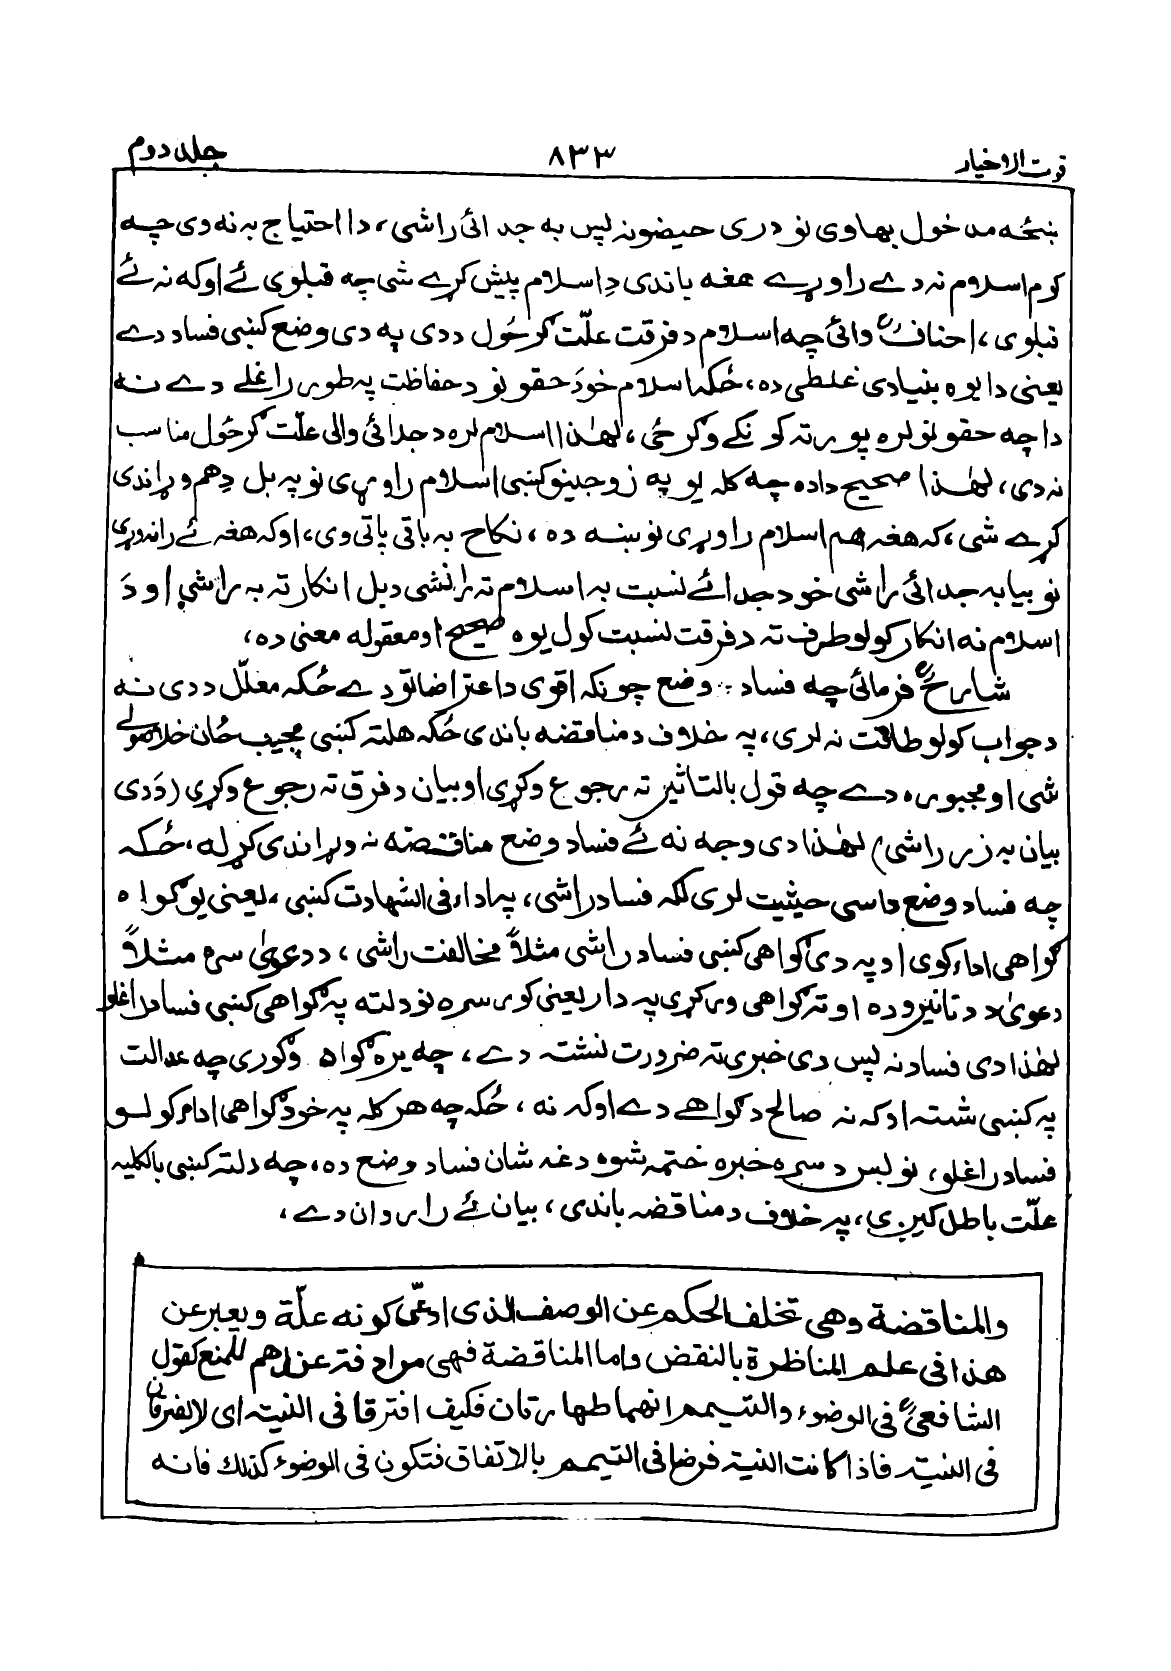 قوت الاخیار
۸۳۳
جلد دوم
ښځه مدخول بهاوی نو دری حیضونه پس به جدائی راشی، دا احتیاج به نه وی چه
کوم اسلام نه دے راوړے هغه باندی دِ اسلام پیش کړے شی چه قبلوی ئے اوکه نه ئے
قبلوی، احنافؒ وائی چه اسلام د فرقت علّت ګرځول ددی په دی وضع کښی فساد دے
یعنی دا یوه بنیادی غلطی ده، ځکه اسلام خو دَ حقوقو د حفاظت په طور راغلے دے نه
دا چه حقوقو لره پورته کونکے وګرځی، لهٰذا اسلام لره د جدائی والی علّت ګرځول مناسب
نه دی، لهٰذا صحیح دا ده چه کله یو په زوجینو کښی اسلام راوړی نو په بل دِ هم وړاندی
کړے شی، که هغه هم اسلام راوړی نو ښه ده، نکاح به باقی پاتی وی، اوکه هغه ئے رانه وړی
نو بیا به جدائی راشی خو د جدائے نسبت به اسلام ته رانشی دبل انکار ته به راشی او دَ
اسلام نه انکار کولو طرف ته د فرقت نسبت کول یوه صحیح او معقوله معنی ده،
شارحؒ فرمائی چه فساد وضع چونکه اقوی د اعتراضاتو دے ځکه معلّل ددی نه
د جواب کولو طاقت نه لری، په خلاف د مناقضه باندی ځکه هلته کښی مجیب ځان خلاصولے
شی او مجبوره دے چه قول بالتاثیر ته رجوع وکړی او بیان د فرق ته رجوع وکړی (دَ دی
بیان به زر راشی) لهٰذا دی وجه نه ئے فساد وضع مناقضه نه وړاندی کړله، ځکه
چه فساد وضع داسی حیثیت لری لکه فساد راشی، په اداء فی الشهادت کښی، یعنی یو ګواه
ګواهی اداء کوی او په دی ګواهی کښی فساد راشی مثلاً مخالفت راشی، د دعویٰ سره مثلاً
دعویٰ د دنانیرو ده او ته ګواهی ورکړی په دار یعنی کور سره نو دلته په ګواهی کښی فساد راغلو
لهٰذا دی فساد نه پس دی خبری ته ضرورت نشته دے، چه یره ګواه وګوری چه عدالت
په کښی شته اوکه نه صالح د ګواهے دے اوکه نه، ځکه چه هرکله په خود ګواهی اداء کولو
فساد راغلو، نو بس د سره خبره ختمه شوه دغه شان فساد وضع ده، چه دلته کښی بالکلیه
علّت باطل کیږی، په خلاف د مناقضه باندی، بیان ئے را روان دے،
والمناقضة وهی تخلف الحکم عن الوصف الذی ادعّی کونه علّة ویعبر عن
هذا فی علم المناظرة بالنقض واما المناقضة فهی مرادفة عندهم للمنع کقول
الشافعیؒ فی الوضوء والتیمم انهما طهارتان فکیف افترقا فی النیة ای لا یفترقان
فی النیة فاذا کانت النیة فرضا فی التیمم بالاتفاق فتکون فی الوضوء کذلك فانه